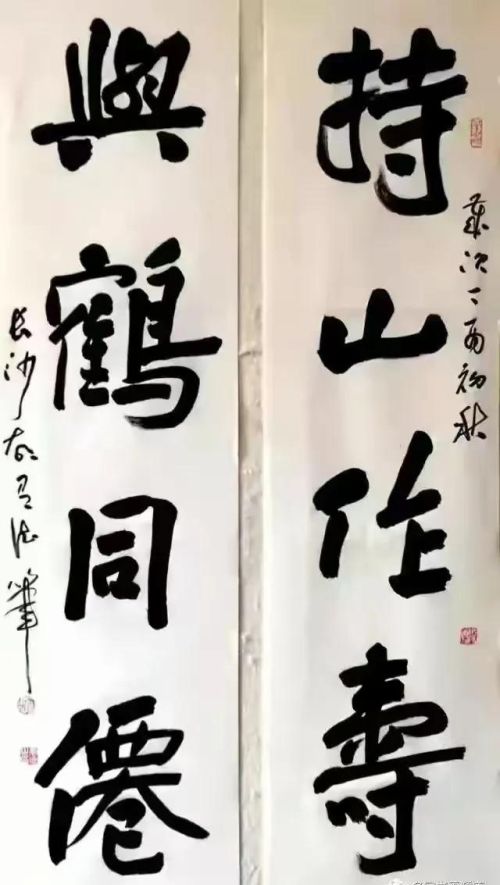 持山作壽
歲次丁酉初秋
與鶴同僊
長沙
筆